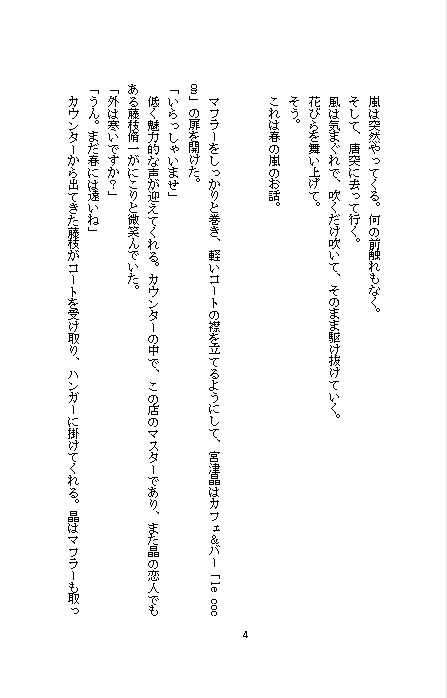 嵐は突然やってくる。何の前触れもなく。
そして、唐突に去って行く。
風は気まぐれで、吹くだけ吹いて、そのまま駆け抜けていく。
花びらを舞い上げて。
そう。
これは春の嵐のお話。
マフラーをしっかりと巻き、軽いコートの襟を立てるようにして、宮津晶はカフェ&バー「le coc
on」の扉を開けた。
「いらっしゃいませ」
低く魅力的な声が迎えてくれる。カウンターの中で、この店のマスターであり、また晶の恋人でも
ある藤枝脩一がにこりと微笑んでいた。
「外は寒いですか？」
「うん。まだ春には遠いね」
カウンターから出てきた藤枝がコートを受け取り、ハンガーに掛けてくれる。晶はマフラーも取っ
4